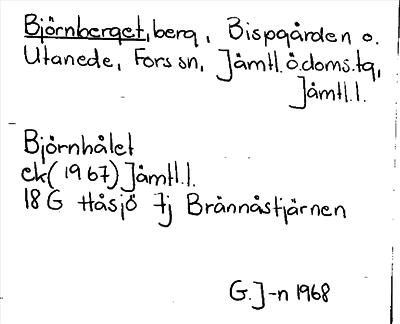 Björnberget, berg, Bispgården o.
Utanede, Fors sn, Jämtl.ö.doms.tg,
Jämtl.l.
Björnhålet
ek(1967) Jämtl.l.
18 G Håsjö 7j Brännåstjärnen
G.J-n 1968